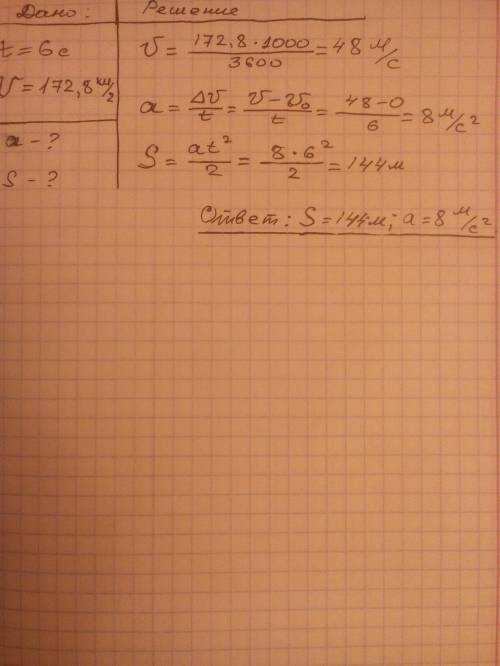 Дано: Решение
t = 6 с
V = 172,8 км/ч
a - ?
S - ?
v = 172,8 · 1000 / 3600 = 48 м/с
a = Δv / t = v - v₀ / t = 48 - 0 / 6 = 8 м/с²
S = at² / 2 = 8 · 6² / 2 = 144 м
Ответ: S = 144 м; a = 8 м/с²